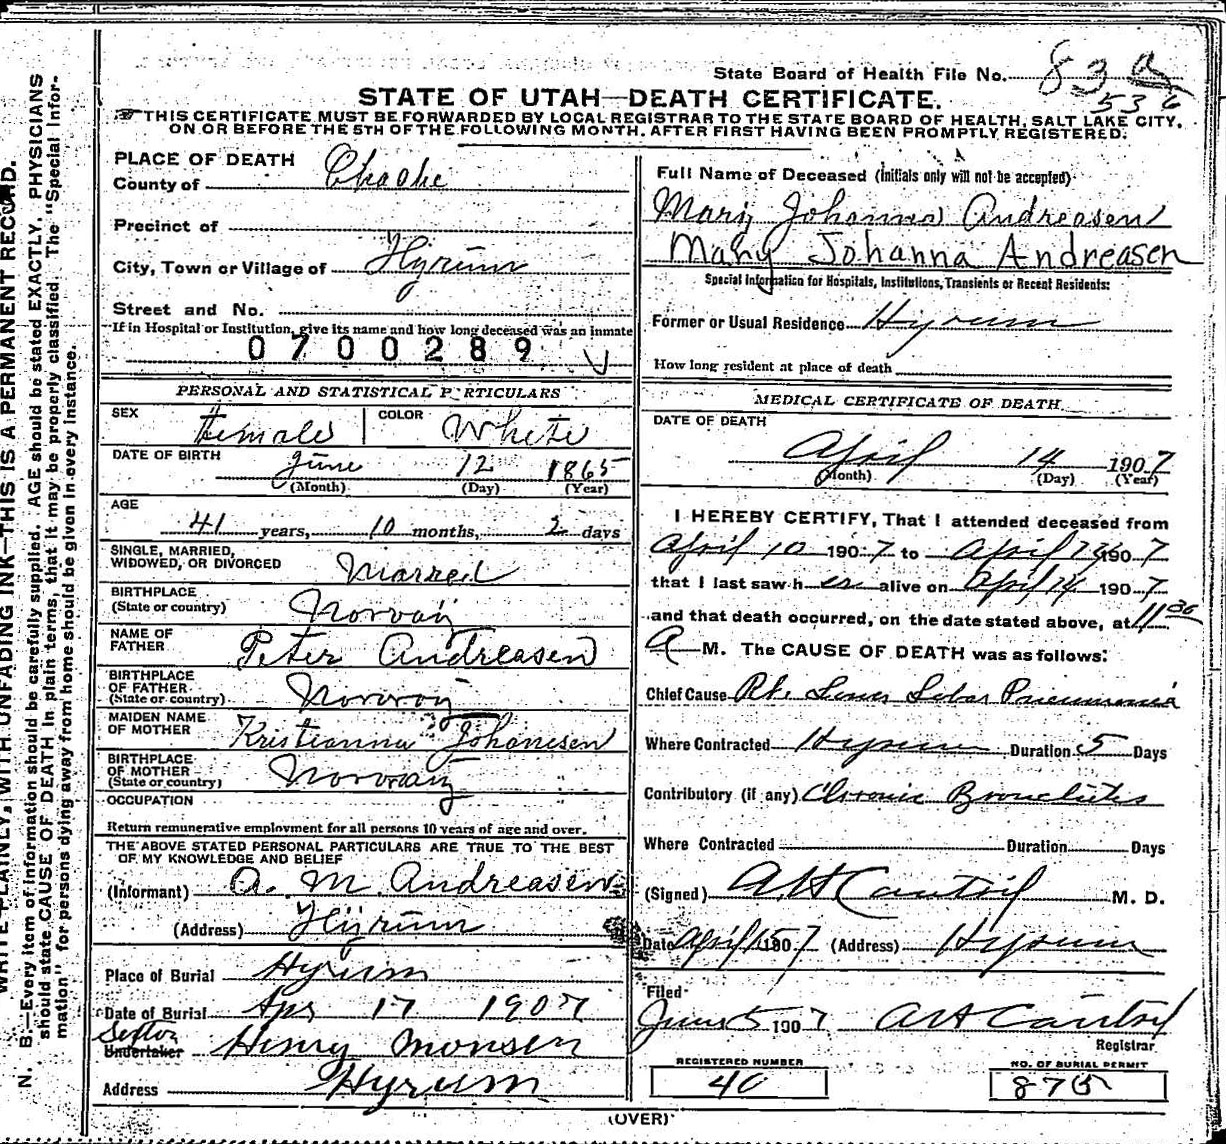 State Board of Health File No. 83 a
536
STATE OF UTAH—DEATH CERTIFICATE.
THIS CERTIFICATE MUST BE FORWARDED BY LOCAL REGISTRAR TO THE STATE BOARD OF HEALTH, SALT LAKE CITY,
ON OR BEFORE THE 5TH OF THE FOLLOWING MONTH, AFTER FIRST HAVING BEEN PROMPTLY REGISTERED.
WRITE PLAINLY, WITH UNFADING INK—THIS IS A PERMANENT RECORD.
N. B.—Every item of information should be carefully supplied. AGE should be stated EXACTLY. PHYSICIANS
should state CAUSE OF DEATH in plain terms, that it may be properly classified. The "Special Infor-
mation" for persons dying away from home should be given in every instance.
PLACE OF DEATH
County of
Precinct of
City, Town or Village of Hyrum
Street and No.
If in Hospital or Institution, give its name and how long deceased was an inmate
0700289
PERSONAL AND STATISTICAL PARTICULARS
SEX Female COLOR White
DATE OF BIRTH June 12 1865
(Month) (Day) (Year)
AGE
41 years, 10 months, 2 days
SINGLE, MARRIED,
WIDOWED, OR DIVORCED Marred
BIRTHPLACE
(State or country) Norway
NAME OF
FATHER Peter Andreasen
BIRTHPLACE
OF FATHER
(State or country) Norway
MAIDEN NAME
OF MOTHER Kristianna Johanesen
BIRTHPLACE
OF MOTHER
(State or country) Norway
OCCUPATION
Return remunerative employment for all persons 10 years of age and over.
THE ABOVE STATED PERSONAL PARTICULARS ARE TRUE TO THE BEST
OF MY KNOWLEDGE AND BELIEF
(Informant) A. M. Andreasen
(Address) Hyrum
Place of Burial Hyrum
Date of Burial Apr 17 1907
Sexton
Undertaker Henry Monsen
Address Hyrum
Full Name of Deceased (initials only will not be accepted)
Mary Johanna Andreasen
Mary Johanna Andreasen
Special Information for Hospitals, Institutions, Transients or Recent Residents:
Former or Usual Residence Hyrum
How long resident at place of death
MEDICAL CERTIFICATE OF DEATH
DATE OF DEATH
April 14 1907
(Month) (Day) (Year)
I HEREBY CERTIFY, That I attended deceased from
April 10 1907 to April 1907
that I last saw her alive on April 14 1907
and that death occurred, on the date stated above, at 11 30
A M. The CAUSE OF DEATH was as follows:
Chief Cause Rt. Lower Lobar Pneumonia
Where Contracted Hyrum Duration 5 Days
Contributory (if any) Chronic Bronchitis
Where Contracted Duration Days
(Signed) A H Cantril M. D.
Date April 15 1907 (Address) Hyrum
Filed
June 5 1907 A H Cantril
Registrar
REGISTERED NUMBER
40
NO. OF BURIAL PERMIT
875
(OVER)